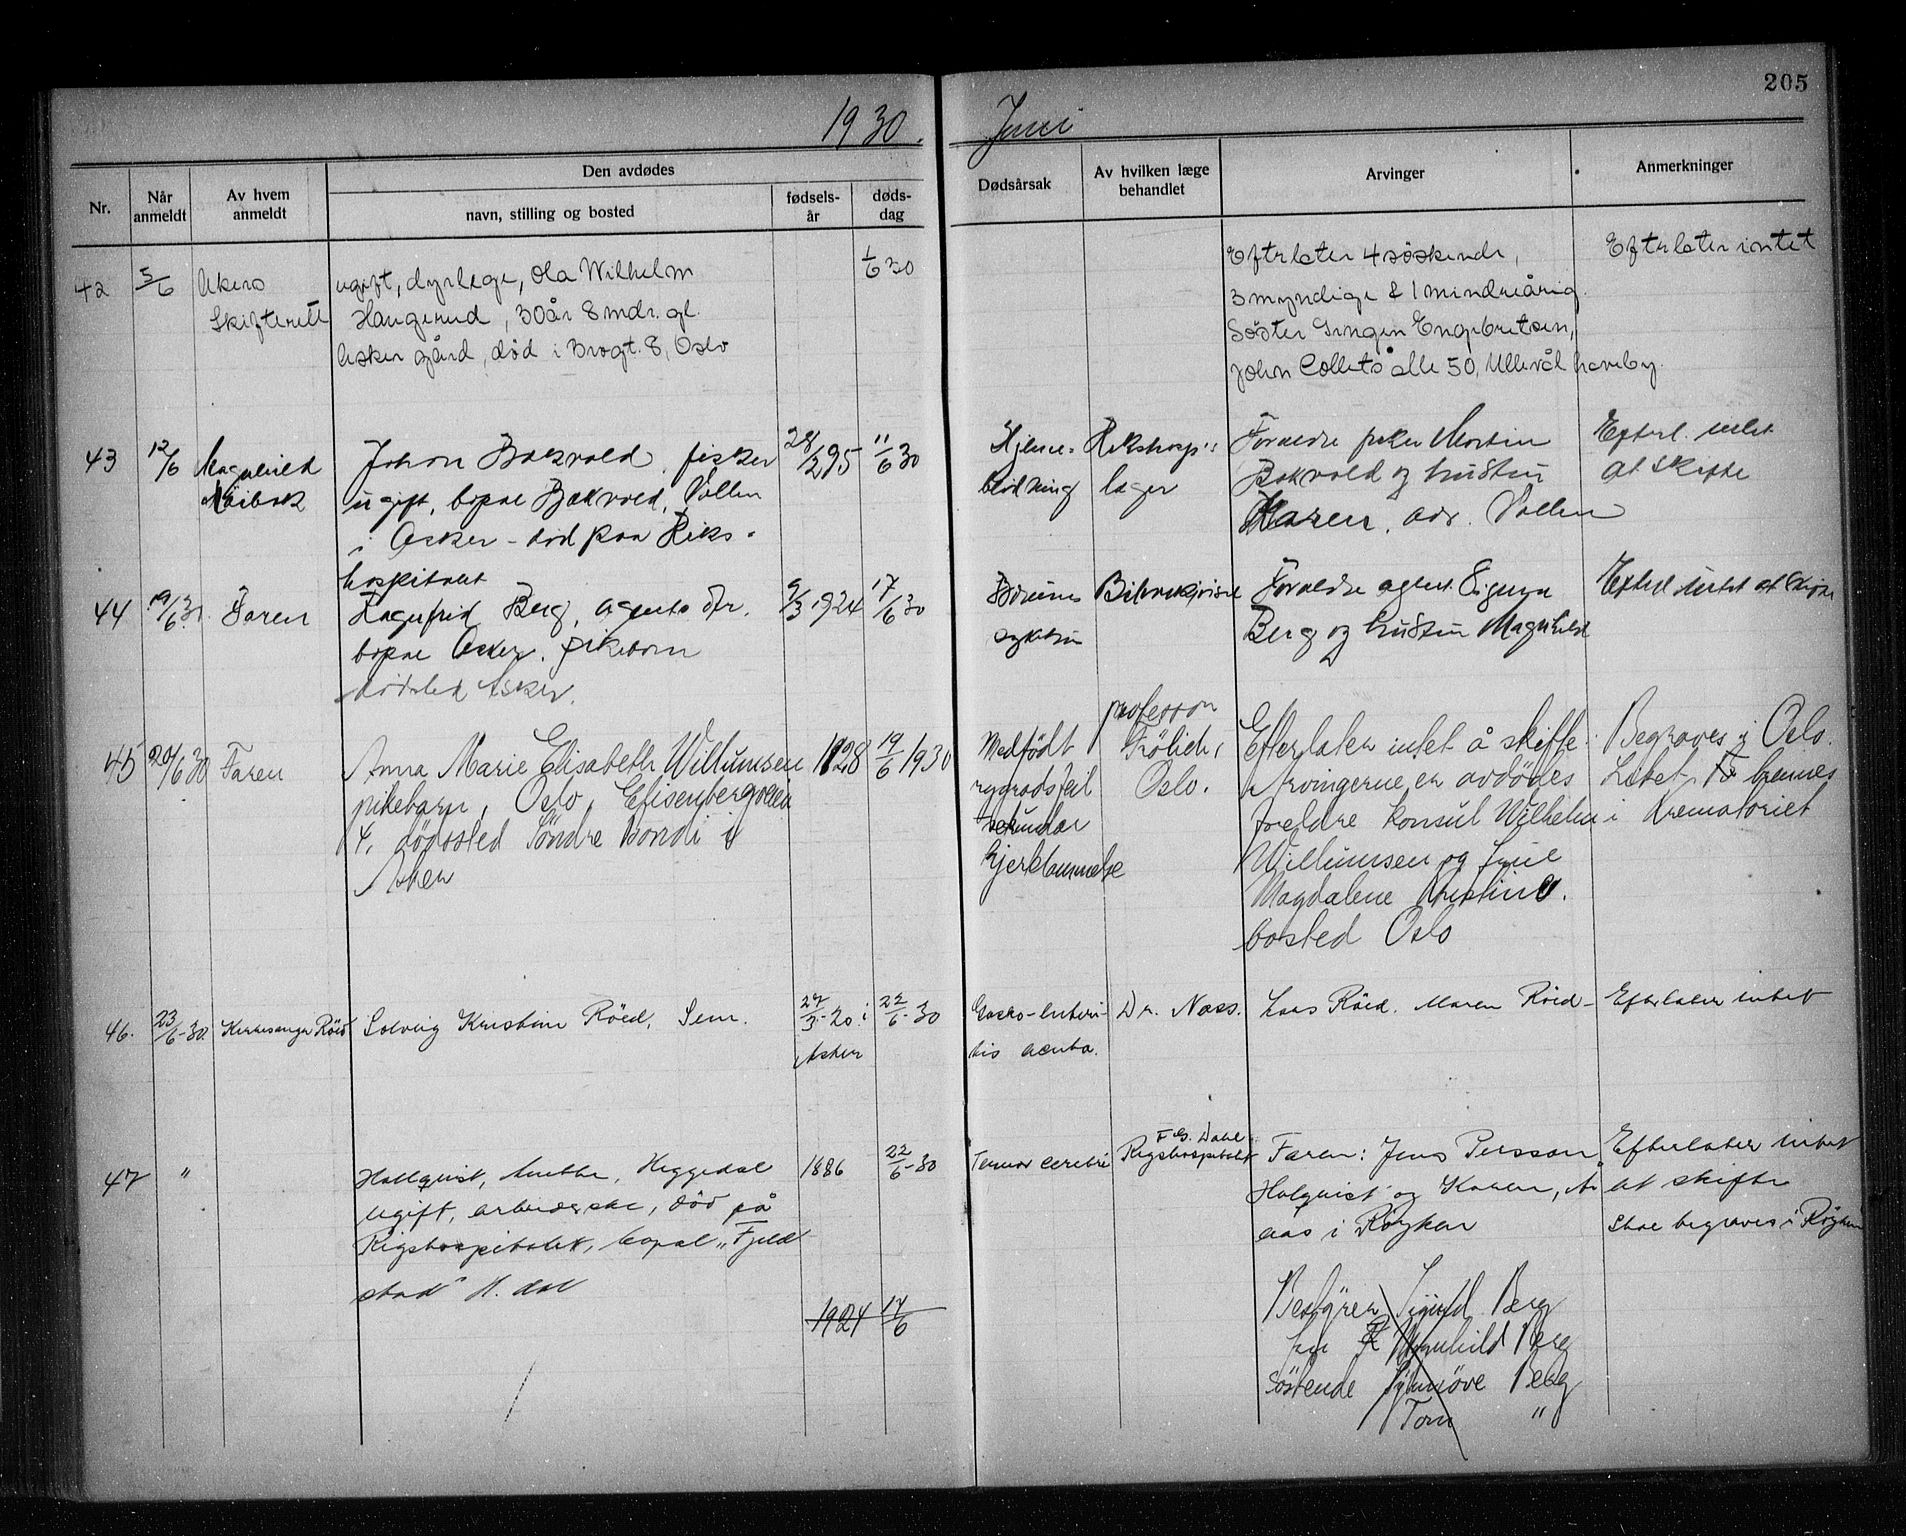 205
1930. Juni
Nr.
Når anmeldt
Av hvem anmeldt
Den avdødes
navn, stilling og bosted
fødsels-år
døds-dag
Dødsårsak
Av hvilken læge behandlet
Arvinger
Anmerkninger
42 5/6 Akers Skifterett
ugift, dyrlege, Ola Wilhelm
Haugerud, 30 år 8 mdr. gl.
Asker gård, død i Brogt. 8, Oslo
1/6 30
Efterlater 4 søskende,
3 myndige & 1 mindreårig
Søster Engebretsen,
John Collets alle 50, Ullevål haveby.
Efterlater intet
43 12/6 Magnhild
Johan Bakvold, fisker
ugift, bopæl Bakvold, Vollen
i Asker – død paa Riks-
hospitalet
28/2 95
11/6 30
Hjerne-
blødning
Rikshosp's
læger
Foreldre fisker Martin
Bakvold og hustru
Karen, adr. Vollen
Efterl. intet
at skifte
44 19/6 30. Faren
Ragnfrid Berg, agents dtr.
bopæl Asker. pikebarn
dødsted Asker.
9/3 1924
17/6 30
Bærums
sykehus
Foreldre agent Sigurd
Berg og hustru Magnhild
Efterl intet at skifte
45 20/6 30 Faren
Anna Marie Elisabeth Willumsen
pikebarn, Oslo,
4, dødssted Søndre Bondi i
Asker
1928
19/6 1930
Medfødt
rygradsfeil
sekundær
hjertelammelse
professor
Frølich,
Oslo.
Efterlater intet å skifte.
Arvingerne er avdødes
foreldre konsul Wilhelm
Willumsen og frue
Magdalene Kristine.
bosted Oslo
Begraves i Oslo.
Liket brennes
i Krematoriet
46. 23/6-30. Kirkesanger Røed
Solveig Kristine Røed, Sem.
27/3-20 i
Asker
22/6-30
Gastro-enteri-
tis acuta.
Dr. Næss.
Lars Røed. Maren Røed–
Efterlater intet
47 "
Hallqvist, Anette, Heggedal
ugift, arbeiderske, død på
Rigshospitalet, bopæl „Fjeld
stad" H. dal
1886
22/6-30
Tumor cerebri
F. G. Dahl
Rigshospitalet
Faren: Jens Persson
Holqvist og Karen, Å
aas i Røyken
Efterlater intet
at skifte
Skal begraves i Røyken
1924 17/6
Bestyrer Sigurd Berg
fru Magnhild Berg
Søskende Synnøve Berg
Tom "